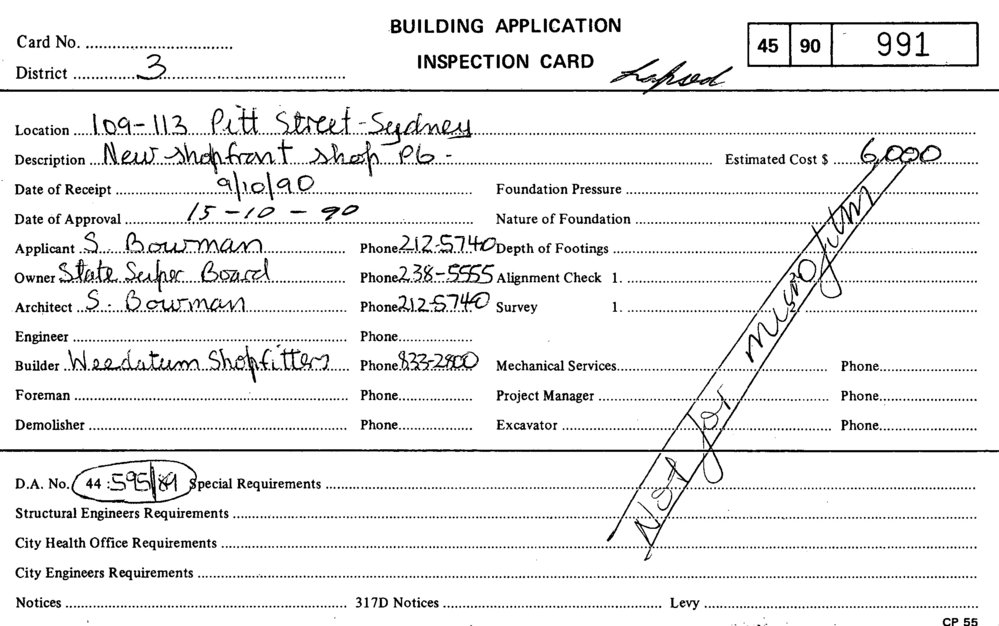 BUILDING APPLICATION
INSPECTION CARD
Card No.
District 3
Lapsed
45 90 991
Location 109-113 Pitt Street - Sydney
Description New shopfront shop P6 - Estimated Cost $ 6,000
Date of Receipt 9/10/90 Foundation Pressure
Date of Approval 15-10-90 Nature of Foundation
Applicant S. Bowman Phone 212-5740 Depth of Footings
Owner State Super Board Phone 238-5555 Alignment Check 1.
Architect S. Bowman Phone 212-5740 Survey 1.
Engineer Phone
Builder Weedatum Shopfitters Phone 833-2800 Mechanical Services Phone
Foreman Phone Project Manager Phone
Demolisher Phone Excavator Phone
Not for microfilm
D.A. No. 44:595/89 Special Requirements
Structural Engineers Requirements
City Health Office Requirements
City Engineers Requirements
Notices 317D Notices Levy
CP 55